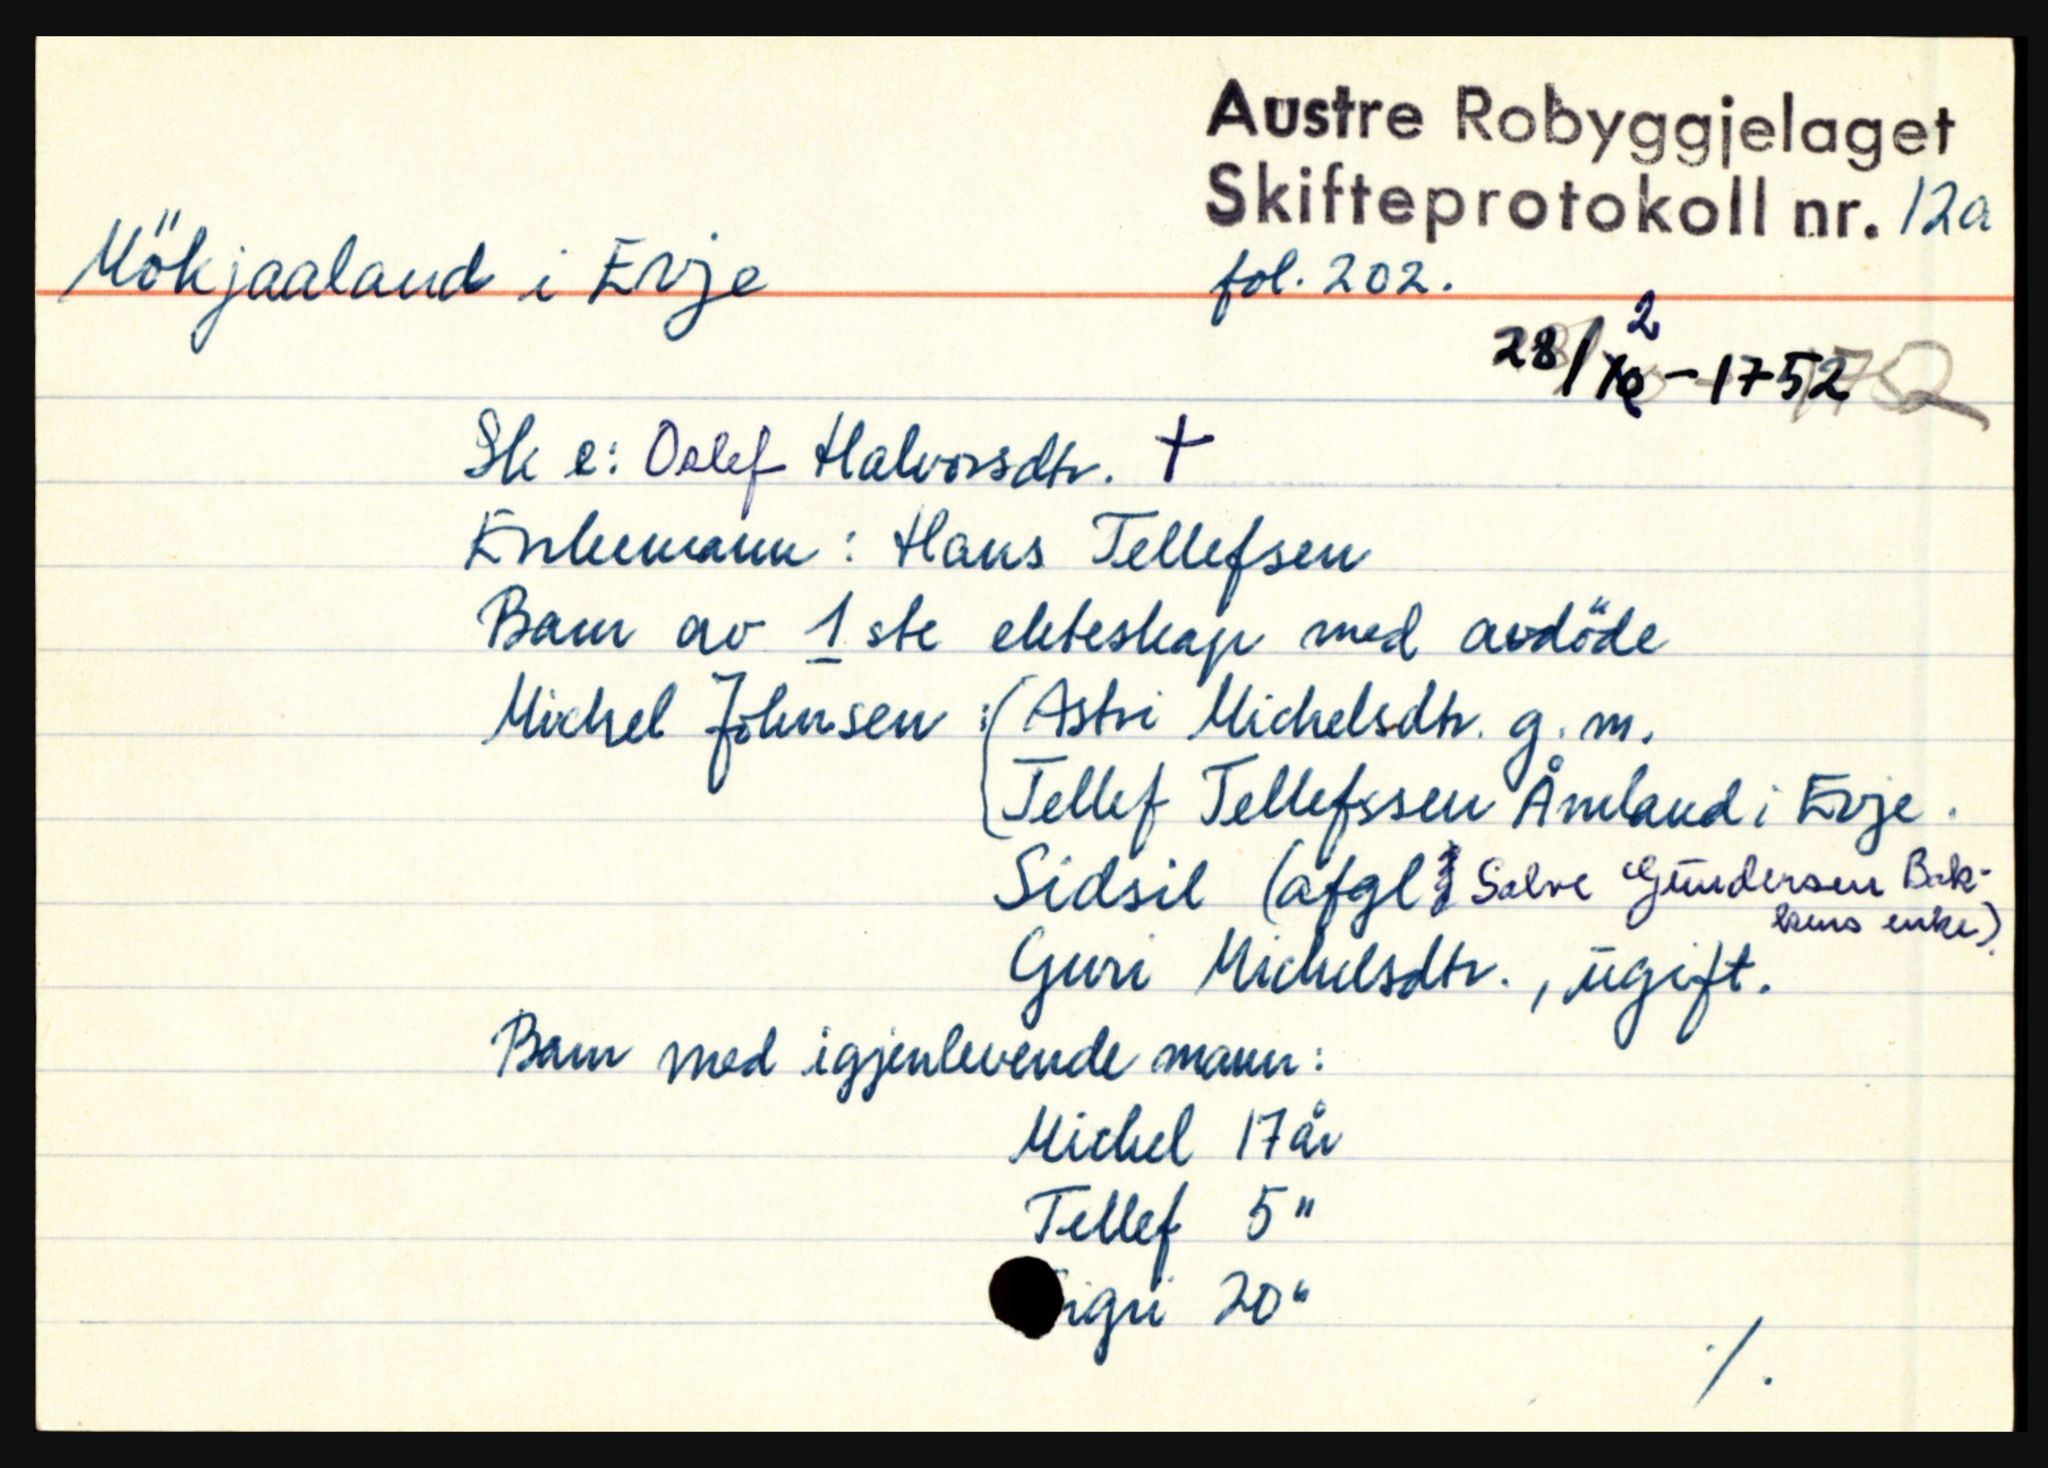 Austre Robyggjelaget
Skifteprotokoll nr. 12a
Mökjaaland i Evje
fol. 202.
28/2 - 1752
Sk e: Oslef Halvorsdtr. †
Enkemann: Hans Tellefsen
Barn av 1ste ekteskap med avdöde
Michel Johnsen : (Astri Michelsdtr. g. m.
Tellef Tellefssen Åmland i Evje.
Sidsil (afgl. Salve Gundersen Bak-
kens enke).
Guri Michelsdtr., ugift.
Barn med igjenlevende mann:
Michel 17 år
Tellef 5 "
igri 20 "
./.